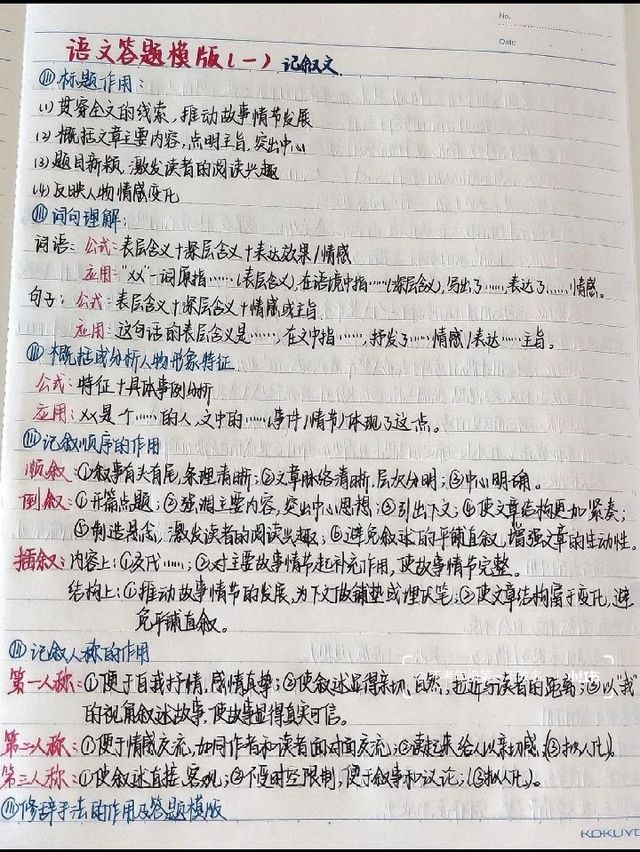 No.
Date
语文答题模版(一) 记叙文.
标题作用:
(1) 贯穿全文的线索,推动故事情节发展
(2) 概括文章主要内容,点明主旨,突出中心
(3) 题目新颖,激发读者的阅读兴趣
(4) 反映人物情感变化
词句理解:
词语: 公式: 表层含义+深层含义+表达效果/情感
应用: "XX"一词原指……(表层含义),在语境中指……(深层含义),写出了……,表达了……情感。
句子: 公式: 表层含义+深层含义+情感或主旨
应用: 这句话的表层含义是……,在文中指……,抒发了……情感/表达……主旨。
概括或分析人物形象特征
公式: 特征+具体事例分析
应用: XX是个……的人,文中的……(事件/情节)体现了这一点。
记叙顺序的作用
顺叙: ①叙事有头有尾,条理清晰;②文章脉络清晰,层次分明;③中心明确。
倒叙: ①开篇点题;②强调主要内容,突出中心思想;③引出下文;④使文章结构更加紧凑;
⑤制造悬念,激发读者的阅读兴趣;⑥避免叙述的平铺直叙,增强文章的生动性。
插叙: 内容上:①交代……;②对主要故事情节起补充作用,使故事情节完整。
结构上:①推动故事情节的发展,为下文做铺垫或埋伏笔;②使文章结构富于变化,避
免平铺直叙。
记叙人称的作用
第一人称: ①便于自我抒情,感情真挚;②使叙述显得亲切、自然,拉近与读者的距离;③以"我"
的视角叙述故事,使故事显得真实可信。
第二人称: ①便于情感交流,如同作者和读者面对面交流;②读起来给人以亲切感;(③拟人化)。
第三人称: ①使叙述直接、客观;②不受时空限制,便于叙事和议论;(③拟人化)。
修辞手法的作用及答题模版
KOKUYO